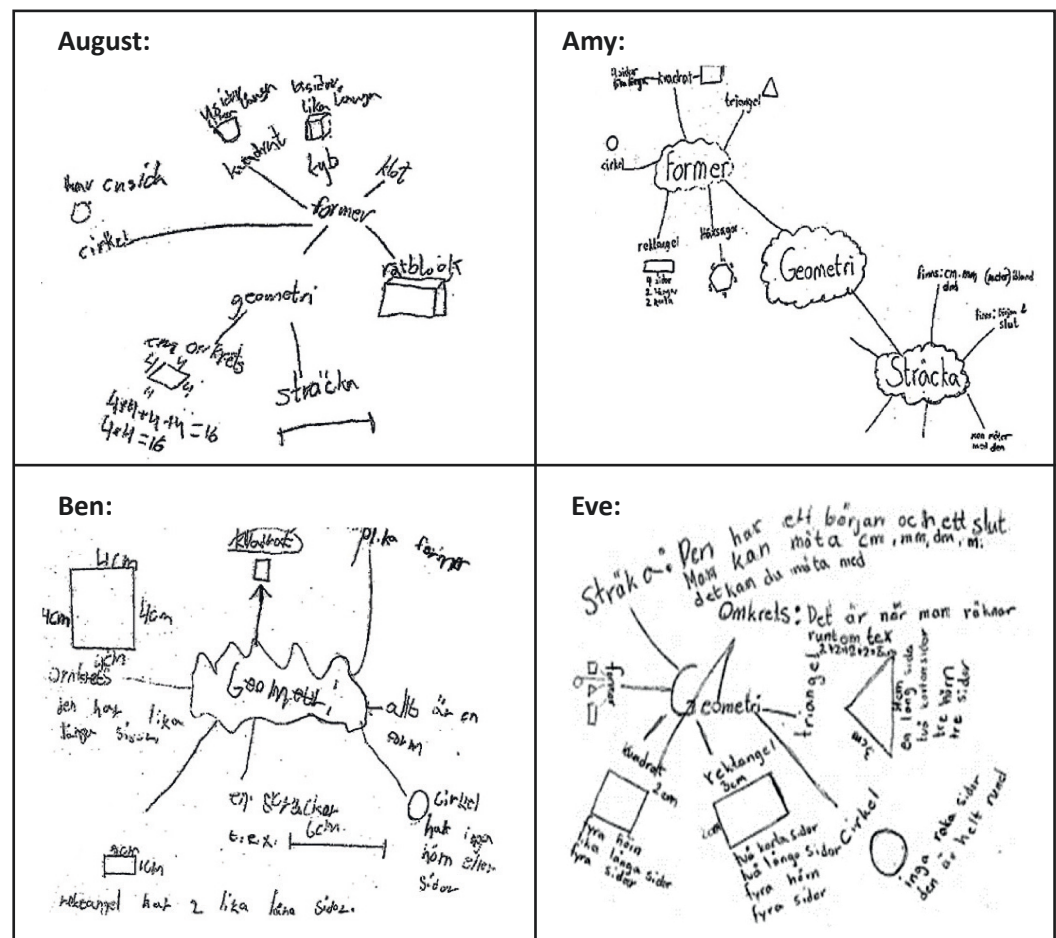 August:
4 sidor
lika långa
6 sidor
lika långa
kvadrat
kyb
klot
har en sida
former
cirkel
rätblock
geometri
omkrets
4 4
4 4
sträcka
4+4+4+4=16
4*4=16
Amy:
4 sidor
kvadrat
triangel
cirkel
former
rektangel
4 sidor
2 långa
2 korta
Geometri
finns: cm, mm (meter) ibland
dm
finns: början &
slut
Sträcka
man mäter
med den
Ben:
kvadrat
olika former
4cm
4cm 4cm
4cm
Geometri
omkrets
den har lika
långa sidor
allt är en
form
en sträcka
t.e.x. 6cm
cirkel
har inga
hörn eller
sidor
1cm
rektangel har 2 lika långa sidor.
Eve:
Sträka: Den har ett början och ett slut
Man kan mäta cm, mm, dm, m.
det kan du mäta med
Omkrets: Det är när man räknar
runt om tex
2+2+2+2=8
former
Geometri
triangel
3cm
en lång sida
två korta sidor
tre hörn
tre sidor
kvadrat
2cm
fyra hörn
lika långa sidor
fyra sidor
rektangel
3cm
två korta sidor
två långa sidor
fyra hörn
fyra sidor
Cirkel
inga raka sidor
den är helt rund